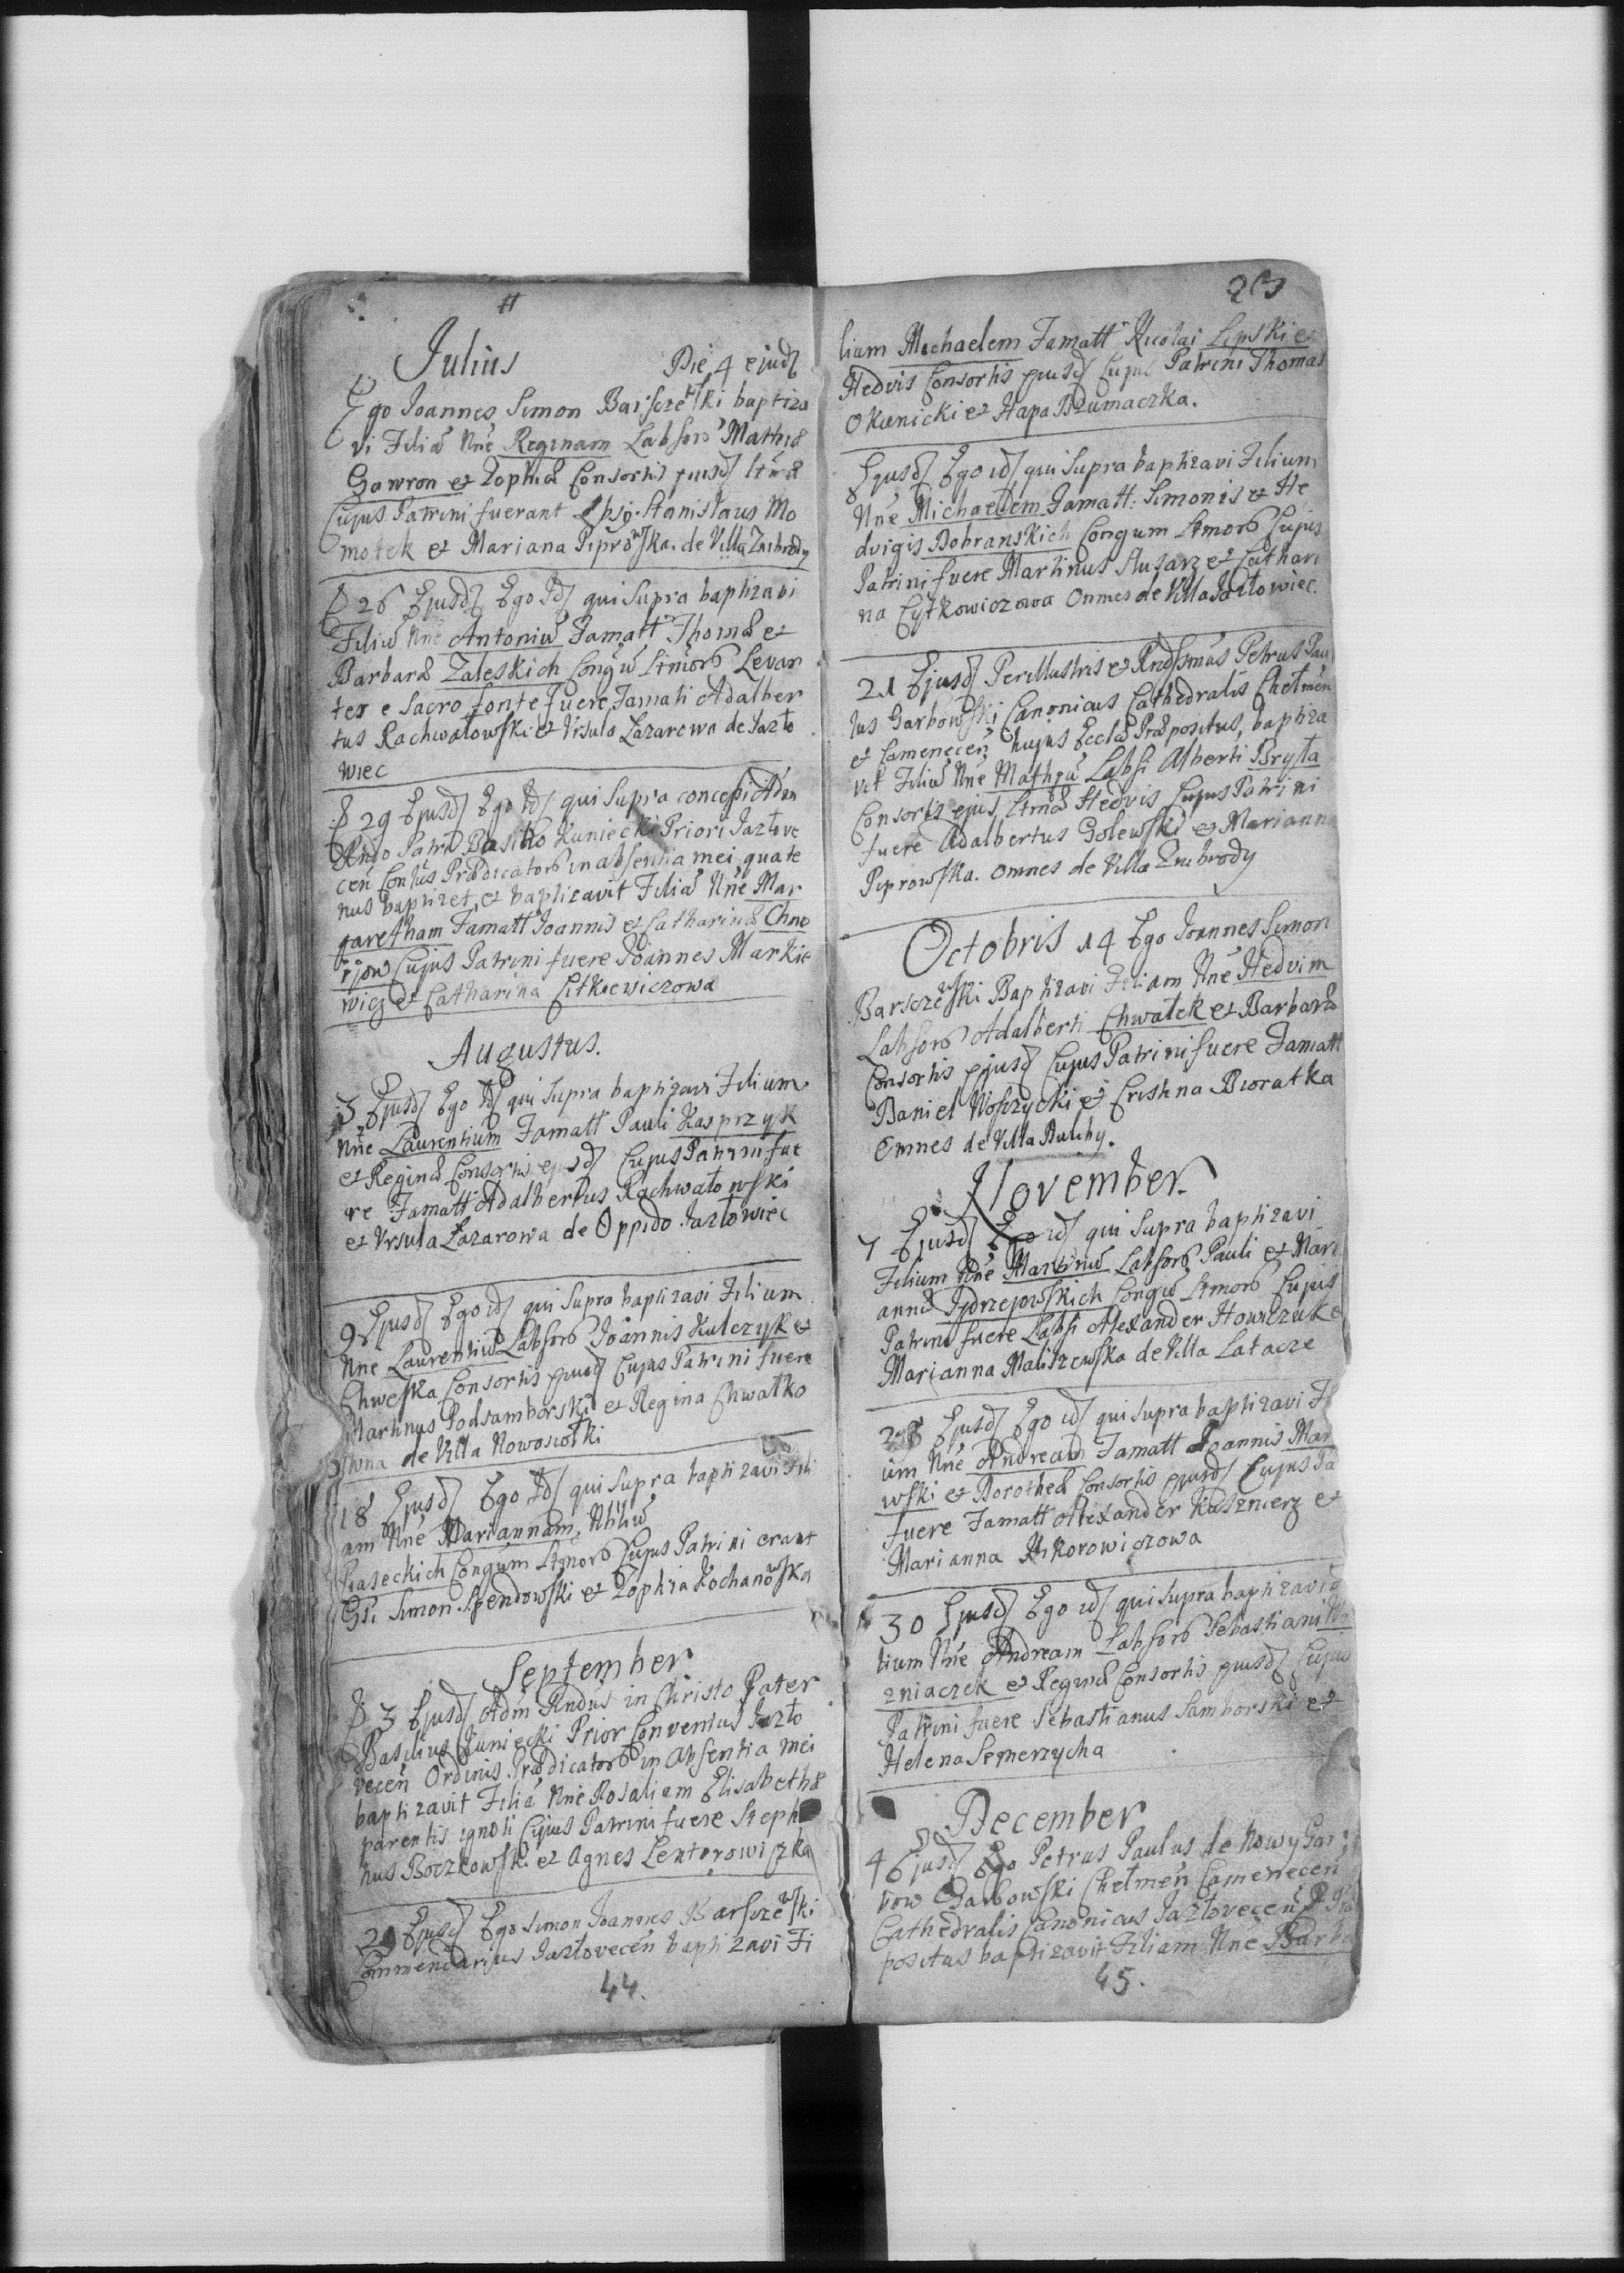 Julius Die 4 ejusd
Ego Joannes Simon Barsczewski baptiza
vi Filiã Nnê Reginam Labsorũ Mathiæ
Gawron et Zophiæ Consortis ejusd ltmæ
Cujus Patrini fuerant Stanislaus Mo
motek et Mariana Piprowska. de Villa Znibrody
D 26 Ejusd Ego Id qui supra baptizavi
Filiũ Nnê Antoniũ Famatt Thomæ et
Barbaræ Zaleskich Congũ ltmorũ Levan
tes e Sacro fonte fuere Famati Adalber
tus Rachwałowski et Ursula Lazarowa de Jazło
wiec
D 29 Ejusd Ego Id qui supra concessi Adm
Rndo Patri Basilio Kuniecki Priori Jazłove
ceñ Contus Prædicatorũ in absentia mei quate
nus baptizet, et baptizavit Filiã Nnê Mar
garetham Famatt Joannis et Catharinæ Chno
Cujus Patrini fuere Joannes Markie
wicz et Catharina Citkiewiczowa
Augustus.
3 Ejusd Ego Id qui supra baptizavi Filium
Nnê Laurentium Famatt Pauli Kasprzyk
et Reginæ Consortis ejusd Cujus Patrini fue
re Famatt Adalbertus Rachwałowski
et Ursula Lazarowa de Oppido Jazłowiec
9 Ejusd Ego id qui supra baptizavi Filium
Nnê Laurentiũ Labsorũ Joannis Kulczyk et
Chweska Consortis ejusd Cujus Patrini fuere
Martinus Podsamborski et Regina Chwałko
wna de Villa Nowosiołki
18 Ejusd Ego Id qui supra baptizavi Fili
am Nnê Mariannam, Nbliũ
Piaseckich Congum ltmorũ Cujus Patrini erant
Gsi Simon Spendowski et Zophia Kochanowska
September
D 3 Ejusd Adm Rndus in Christo Pater
Basilius Kuniecki Prior Conventus Jazło
veceñ Ordinis Prædicatorũ in absentia mei
baptizavit Filiã Nnê Rosaliam Elisabethæ
parentis ignoti Cujus Patrini fuere Steph
nus Boczkowski et Agnes Lentorowiczka
29 Ejusd Ego Simon Joannes Barsczewski
Commendarius Jazłoveceñ baptizavi Fi
44.
lium Michaelem Famatt Nicolai Lipski et
Hedvis Consortis ejusd Cujus Patrini Thomas
Okunicki et Hapa Dzumaczka.
Ejusd Ego id qui supra baptizavi Filium
Nnê Michaelem Famatt: Simonis et He
dvigis Dobranskich Congum ltmorũ Cujus
Patrini fuere Martinus Slusarz et Cathari
na Cytkowiczowa Omnes de Villa Jazłowiec.
21 Ejusd Perillustris et Rndssimus Petrus Pau
lus Garbowski Canonicus Cathedralis Chełmeñ
et Cameneceñ hujus Ecclæ Præpositus, baptiza
vit Filiũ Nnê Mathæũ Labsi Alberti Bryła
Consortis ejus ltmæ Hedvis Cujus Patrini
fuere Adalbertus Golewski et Marianna
Piprowska. omnes de Villa Znibrody
Octobris 14 Ego Joannes Simon
Barsczewski Baptizavi Filiam Nnê Hedvim
Labsorũ Adalberti Chwałek et Barbaræ
Consortis ejusd Cujus Patrini fuere Famatt
Daniel Woszycki et Cristina Bioratka
Omnes de Villa Duliby.
November
7 Ejusd Ego id qui supra baptizavi
Filium Nnê Martinũ Labsorũ Pauli et Mari
annæ Jędrzejowskich Congũ ltmorũ Cujus
Patrini fuere Labsi Alexander Howiczuk e
Marianna Maliszewska de Villa Latacze
28 Ejusd Ego id qui supra baptizavi Fi
um Nnê Andream Famatt Joannis Mar
wski et Dorotheæ Consortis ejusd Cujus Pa
fuere Famatt Alexander Kusznierz et
Marianna Nikorowiczowa
30 Ejusd Ego id qui supra baptizavi
lium Nnê Andream Labsorũ Sebastiani
zniaczek et Reginæ Consortis ejusd Cujus
Patrini fuere Sebastianus Samborski et
Helena Semerzycha
December
4 Ejusd Ego Petrus Paulus de Nowy Gar
bow Garbowski Chełmeñ Cameneceñ
Cathedralis Canonicus Jazłoveceñ Præ
positus baptizavit Filiam Nnê Barba
45.